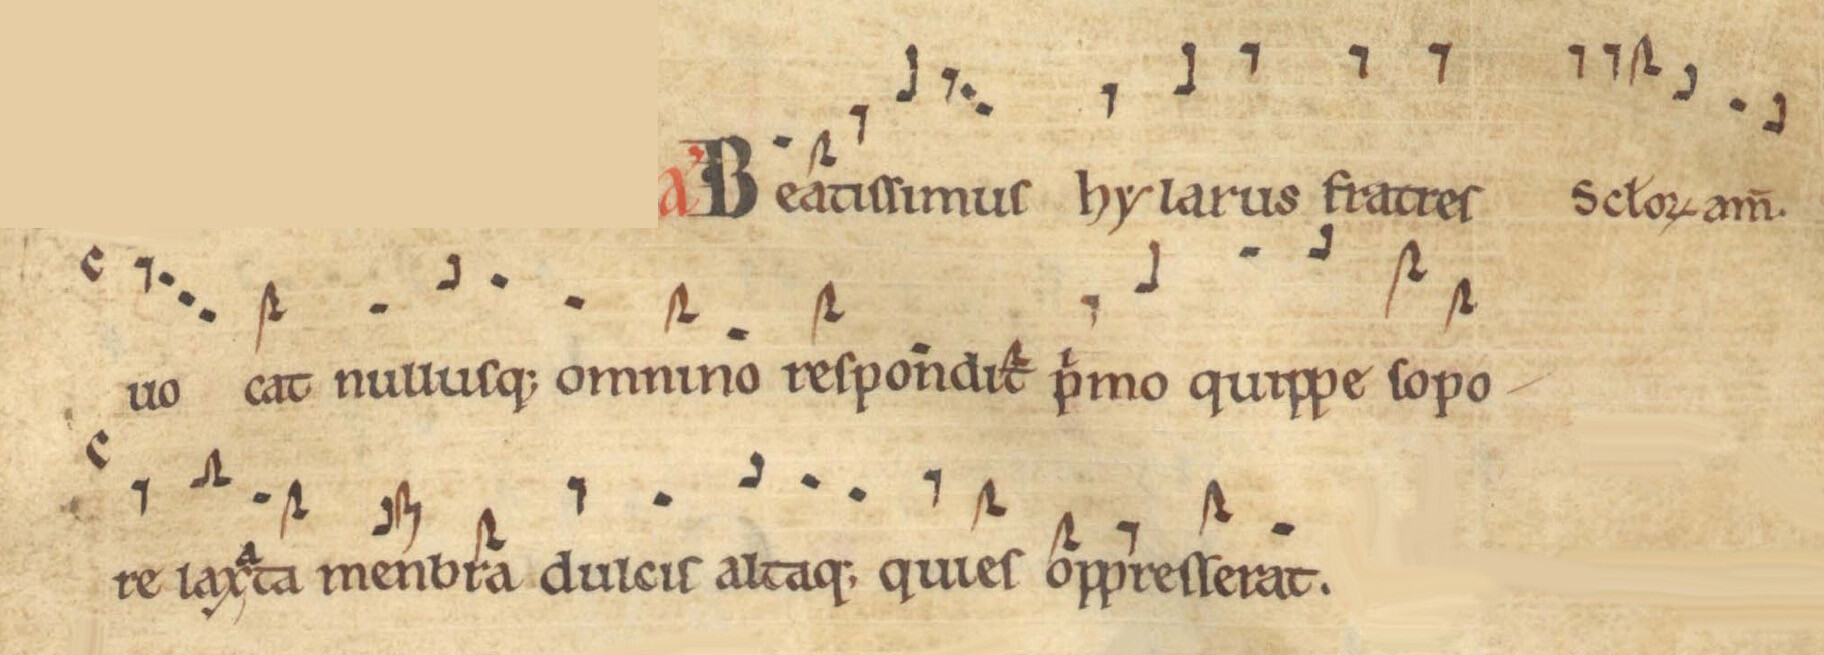 a᷎ Beatissimus hylarus fratres Sctoꝝ am̄.
uo cat nullusq; omnino respondit pͥmo quippe sopo
re laxata menbra dulcis altaq; quies oppresserat.